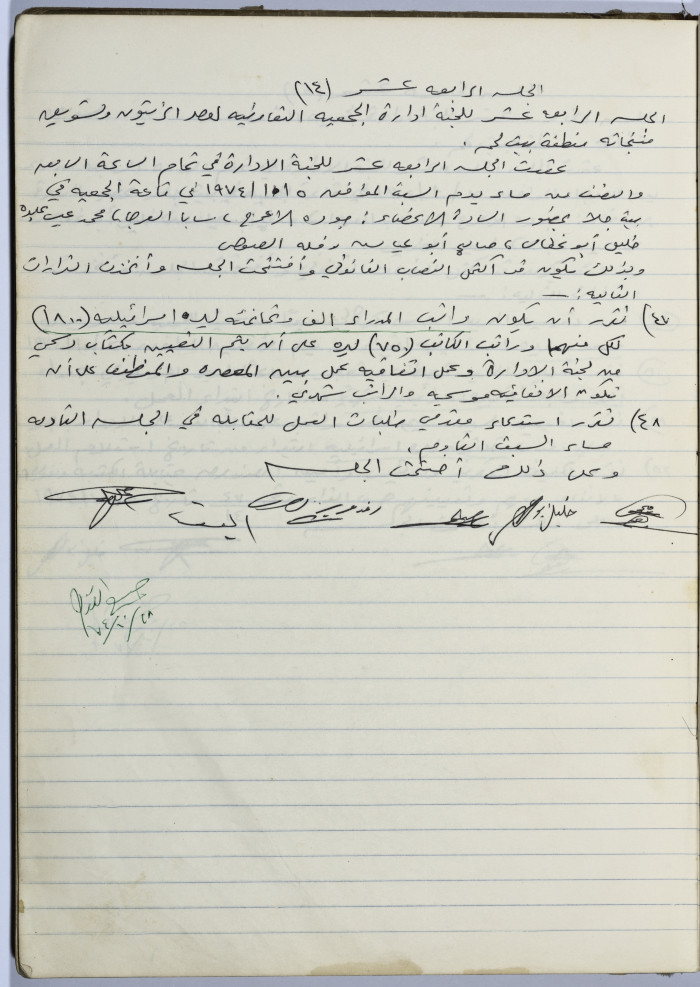 الجلسه الرابعه عشر (١٤)
الجلسه الرابعه عشر للجنة ادارة الجمعيه التعاونيه لعصر الزيتون وتسويق
منتجاته منطقة بيت لحم .
عقدت الجلسه الرابعه عشر للجنة الادارة في تمام الساعة السابعه
والنصف من مساء يوم السبت الموافق ٥ / ١٠ / ١٩٧٤ في قاعة الجمعيه في
بيت جالا بحضور السادة الاعضاء : جوده الاعرج ، سابا العرجا ، محمد عيسى
خليل أبو غطاس ، صالح أبو عياش
وبذلك يكون قد اكتمل النصاب القانوني وأفتتحت الجلسه وأتخذت القرارات
التاليه : —
٤٧) تقرر أن يكون راتب المدراء الف وثمانمئه ليره اسرائيليه (١٨٠٠)
لكل منهما وراتب الكاتب (٧٥٠) ليره على أن يتم التعيين بكتاب رسمي
من لجنة الادارة وعمل اتفاقيه عمل بين المعصره والموظف على أن
تكون الاتفاقيه موسميه والراتب شهري .
٤٨) تقرر استدعاء مقدمي طلبات العمل للمقابله في الجلسه القادمه
مساء السبت القادم .
وعلى ذلك أختتمت الجلسه
خليل
٢٨/١٠/٧٤